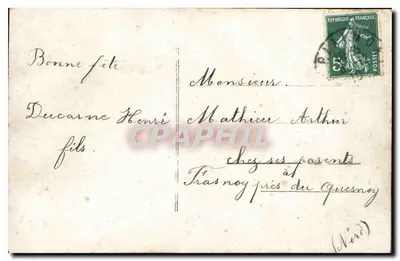 RÉPUBLIQUE FRANÇAISE
5c
POSTES
Bonne fête
Ducarne Henri
fils.
Monsieur
Mathieu Arthur
chez ses parents
à
Frasnoy près du Quesnoy
(Nord)
CPAPHIL